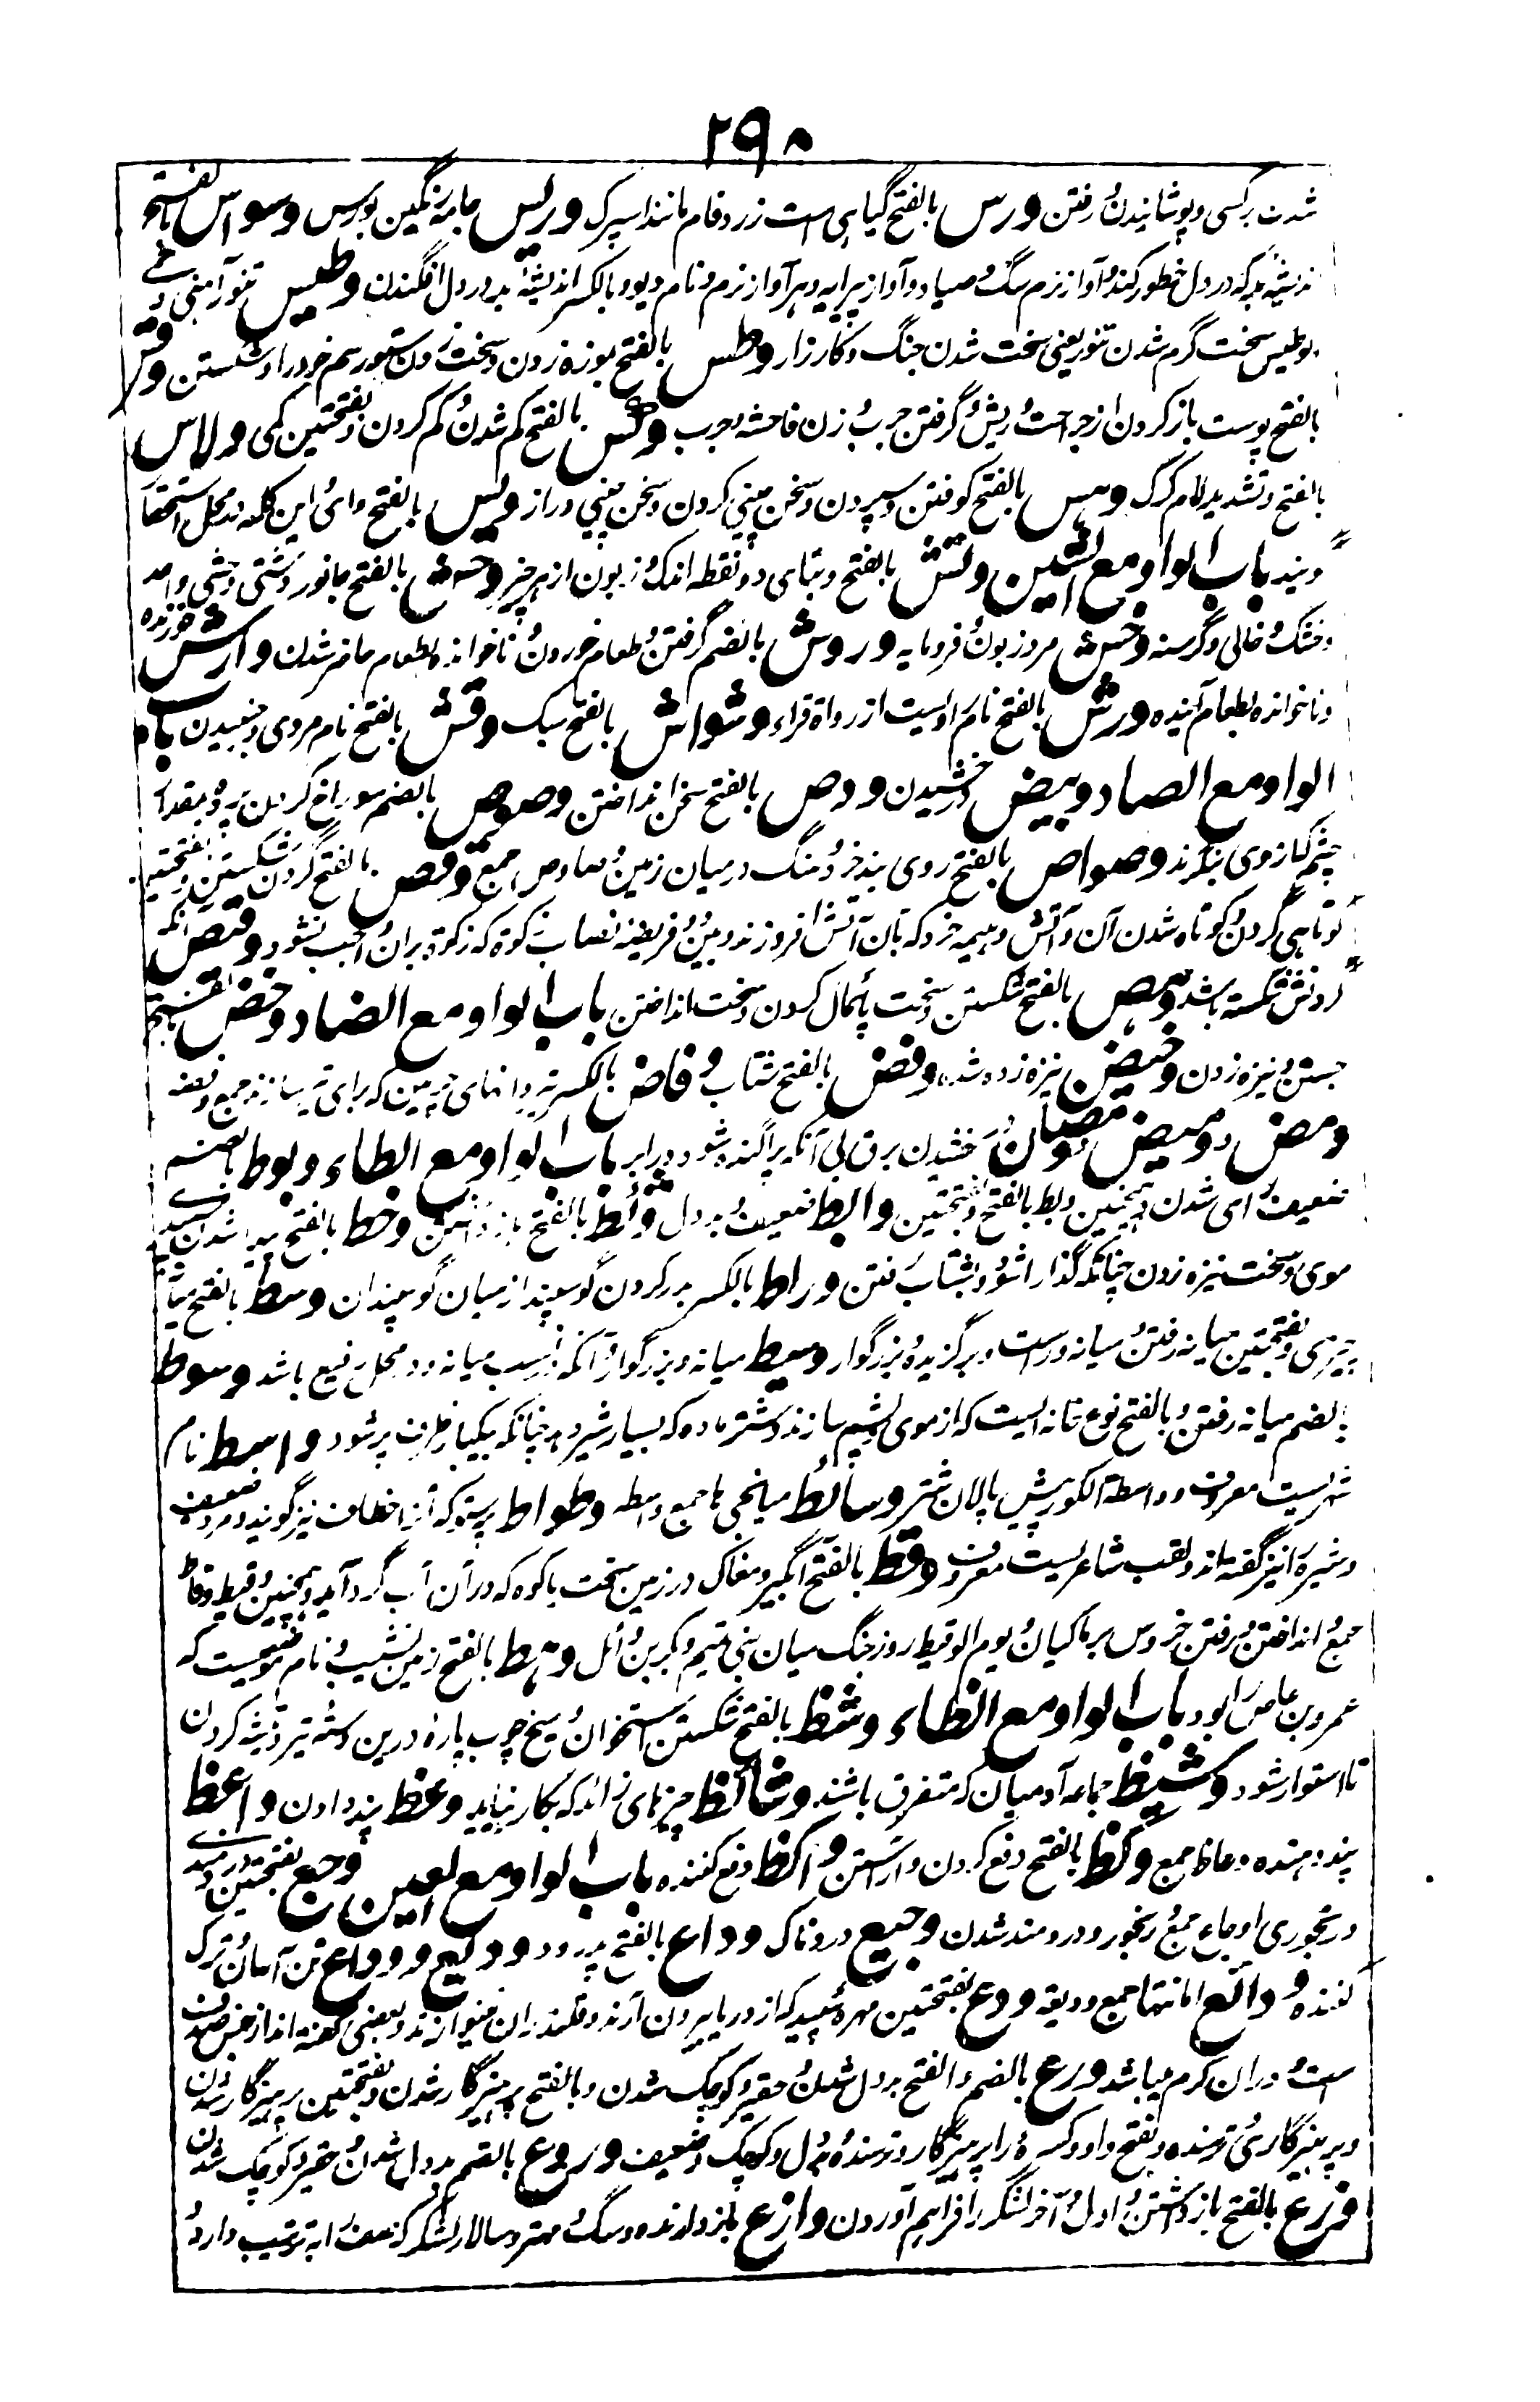 ۲۹۰
شدن بر کسی و پوشانیدن و رفتن ورس بالفتح گیاهی است زرد فام مانند اسپرک وریس جامه رنگین بورس وسواس بالفتح
اندیشه بد که در دل خطور کند و آواز نرم سگ و صیاد و آواز پیرایه و هر آواز نرم و نام دیو و بالکسر اندیشه بد در دل افگندن وطیس تنور آهنی و
بوطیس سخت گرم شدن تنور یعنی سخت شدن جنگ و کارزار وطس بالفتح بموزه زدن و سخت زدن ستور سم خود را و شکستن وقس
بالفتح پوست باز کردن از جراحت و ریش و گرفتن جرب و زن فاحشه و جرب وکس بالفتح کم شدن و کم کردن و بفتحتین کمی ولاس
بالفتح و تشدید لام گرگ وهس بالفتح کوفتن و سپردن و سخن چینی کردن و سخن چینی دراز ویس بالفتح وای این کلمه در محل استحقا
گویند باب الواو مع الشین وتش بالفتح و بتای دو نقطه اندک و زبون از هر چیز وحش بالفتح جانور دشتی وحشی واحد
و خشک و خالی و گرسنه وخش مرد زبون و فرومایه وروش بالضم گرفتن و طعام خوردن و ناخوانده بطعام حاضر شدن وارش خورنده
و ناخوانده بطعام آینده ورش بالفتح نام راویست از رواة قراء وشواش بالفتح سبک وقش بالفتح نام مردی و جنبیدن باب
الواو مع الصاد وبیص درخشیدن ودص بالفتح سخن انداختن وصوص بالضم سوراخ کردن پرده بمقدار
چشم که از وی بنگرند وصواص بالفتح روی بند خرد و سنگ در میان زمین وصاوص جمع وقص بالفتح گردن شکستن و بفتحتین
کوتاهی گردن و کوتاه شدن آن و آتش و هیمه خرد که بآن آتش افروزند و بین فریضه نصاب زکوة که زکوة بران واجب نشود وقیص آنکه
گردنش شکسته باشد وهص بالفتح شکستن و سخت پائمال کردن و سخت انداختن باب الواو مع الضاد وخض بالفتح
جستن و نیزه زدن وخیض نیزه زده شده وفض بالفتح شتاب وفاض بالکسر چرمین که برای جمع وفضه
ومض ومیض ومضان درخشیدن برق بی آنکه پراگنده شود در ابر باب الواو مع الطاء وبوط بالضم
ضعیف رای شدن و همچنین وبط بالفتح و بفتحتین وابط ضعیف و بد دل وأط بالفتح باز داشتن وخط بالفتح پیدا شدن سپیدی
موی و سخت نیزه زدن چنانکه گذارا شود و بشتاب رفتن وراط بالکسر بدر کردن گوسپند از میان گوسپندان وسط بالفتح میان
چیزی و بفتحتین میانه رفتن و میانه و راست و برگزیده و بزرگوار وسیط میانه و بزرگوار و آنکه نسب میانه و در محل رفیع باشد وسوط
بالضم میانه رفتن و بالفتح نوع خانه ایست که از موی و پشم سازند و شتر ماده که بسیار شیر دهد چنانکه بیکبار ظرف پر شود واسط نام
شهریست معروف و واسطة الکور پیش پالان شتر وسائط میانجی ها جمع واسطه وطواط پرستوک آنرا خطاف نیز گویند و مرد ضعیف
و شپره را نیز گفته اند و لقب شاعریست معروف وقط بالفتح آبگیر و مغاک در زمین سخت یا کوه که در آن آب گرد آید و همچنین وقیط وقاط
جمع و انداختن و رفتن خروس بر ماکیان و یوم الوقیط روز جنگ میان بنی تمیم و بکر بن وائل وهط بالفتح زمین نشیب و نام موضعیست که
عمرو بن عاص را بود باب الواو مع الظاء وشظ بالفتح شکستن استخوان و میخ چوب پاره در بن دسته تبر و تیشه کردن
تا استوار شود وشیظ جماعه آدمیان که متفرق باشند وشائظ چیزهای زائد که بکار نیاید وعظ پند دادن واعظ
پند دهنده وعاظ جمع وکظ بالفتح دفع کردن و راستن واکظ دفع کننده باب الواو مع العین وجع بفتحتین دردمندی
و رنجوری اوجاع جمع و رنجور و دردمند شدن وجیع دردناک وداع بالفتح پدرود ودیع ووداع تن آسان و ترک
کننده ودائع امانتها جمع ودیعه ودع بفتحتین مهره سپید که از دریا بیرون آرند و قلندران می نوازند و بعضی گفته اند از جنس صدف
است و دران کرم میباشد ورع بالضم و الفتح بد دل شدن و حقیر و کوچک شدن و بالفتح پرهیزگار شدن و بفتحتین پرهیزگار شدن
و پرهیزگاری و ترسنده و بفتح واو و کسر را پرهیزگار و ترسنده و بد دل و کوچک و ضعیف وروع بالضم بد دل شدن و حقیر و کوچک شدن
وزع بالفتح باز داشتن و اول و آخر لشکر را فراهم آوردن وازع باز دارنده و سگ و مهتر و سالار لشکر که صف را به ترتیب دارد